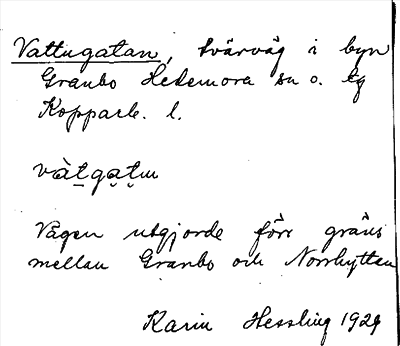 Vattugatan, tvärväg i byn
Granbo Hedemora sn o. tg
Kopparb. l.
vàtgatm
Vägen utgjorde förr gräns
mellan Granbo och Norrhyttan
Karin Hessling 1929